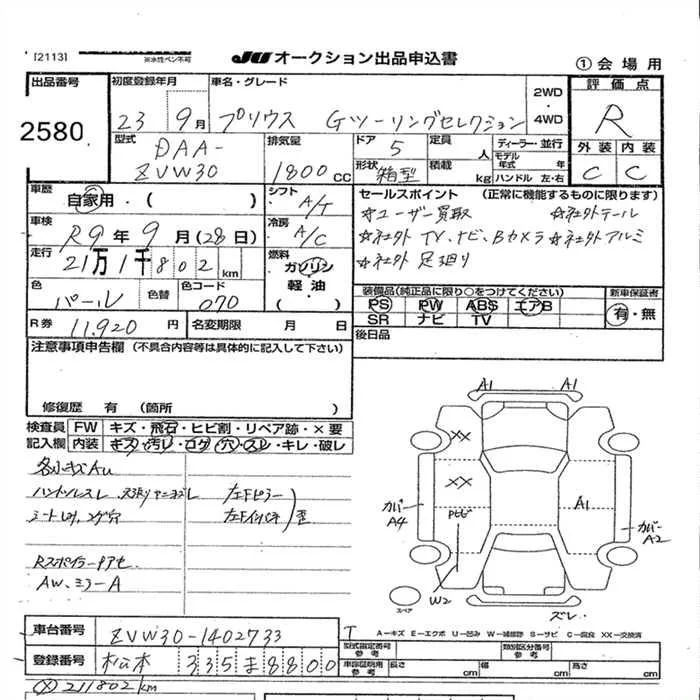 [2113]
※水性ペン不可
JU オークション出品申込書
① 会場用
出品番号
2580
初度登録年月
23 9月
車名・グレード
プリウス Gツーリングセレクション
2WD
・
4WD
評価点
R
型式
DAA-
ZVW30
排気量
1800 CC
ドア
5
定員
人
ディーラー・並行
モデル
年式 年
形状
箱型
積載
kg
ハンドル 左・右
外装 内装
C C
車歴
自家用・( )
シフト
A/T
セールスポイント (正常に機能するものに限ります)
☆ユーザー買取 ☆社外テール
☆社外 TV、ナビ、Bカメラ ☆社外アルミ
☆社外 足廻り
車検
R9年 9月(28日)
冷房
A/C
走行
21万1千802km
燃料
ガソリン
軽油
( )
色
パール
色替
色コード
070
装備品(純正品に限り○をつけてください)
PS PW ABS エアB
SR ナビ TV
新車保証書
有・無
R券 11,920 円
名変期限 月 日
後日品
注意事項申告欄 (不具合内容等は具体的に記入して下さい)
修復歴 有 (箇所 )
検査員
記入欄
FW キズ・飛石・ヒビ割・リペア跡・×要
内装 キズ・汚レ・コゲ・穴・スレ・キレ・破レ
各小キズAU
ハンドルスレ
左Fピラー
左Fインパネ
歪
シートヨゴレ、コゲ穴
Rスポイラー
AW、ミラーA
A1 A1
XX
XX
カバー
A4
A1
カバー
A2
W2
スペア
ズレ
車台番号
ZVW30-1402733
登録番号
松本 335 ま 8800
A－キズ E－エクボ U－凹み W－補修跡 S－サビ C－腐食 XX－交換済
型式指定番号
参考
類別区分番号
参考
車庫証明用
参考
長さ cm
幅 cm
高さ cm
211802km